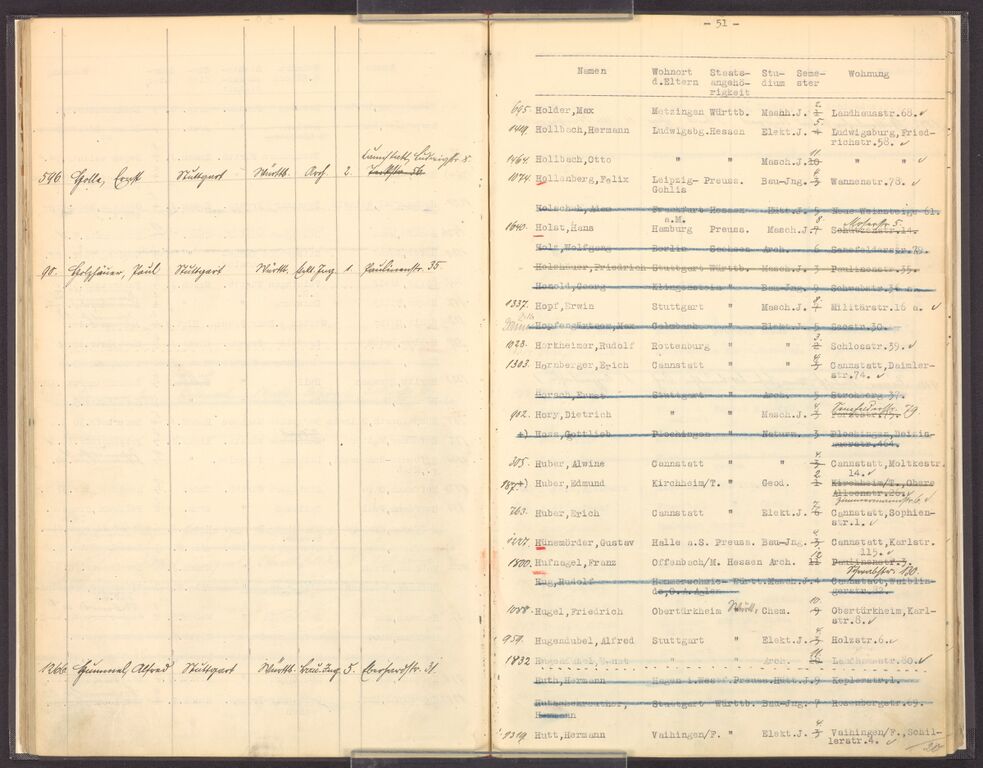 Cannstatt, Ludwigstr. 5.
596 Holle, Ernst Stuttgart Württ. Arch. 2.
90. Holzhäuer, Paul Stuttgart Württ. Elkt. Ing 1. Paulinenstr. 35
1266 Hummel, Alfred Stuttgart Württ. Bau. Ing. 5. Eberhardstr. 31.
- 51 -
Namen Wohnort Staats- Stu- Seme- Wohnung
d.Eltern angehö- dium ster
rigkeit
695. Holder,Max Metzingen Württb. Masch.J. 2. 1 Landhausstr.68.
1409. Hollbach,Hermann Ludwigsbg.Hessen Elekt.J. 5. 4 Ludwigsburg,Fried-
richstr.58.
1464. Hollbach,Otto " " Masch.J. 11. 10 " "
1074. Hollenberg,Felix Leipzig- Preuss. Bau-Jng. 4. 3 Wannenstr.78.
Gohlis
Holschek, Frankfurt Hessen Hütt.J. 5 Neue Weinsteige 61.
a.M. Moserstr 5.
1640. Holst,Hans Hamburg Preuss. Masch.J. 8. 7 Schützenstr.14.
Holz,Wolfgang Berlin Sachsen Arch. 6 Senefelderstr.79.
Holzhäuer,Friedrich Stuttgart Württb. Masch.J. 3 Paulinenstr.35.
Honold,Georg " Bau-Jng. 9 Schwabstr.
1337. Hopf,Erwin Stuttgart " Masch.J. 8. 7 Militärstr.16 a.
Hopfengärtner,Max " Elekt.J. 5 Seestr.30.
1023. Horkheimer,Rudolf Rottenburg " " 3. 2 Schlosstr.39.
1303. Hornberger,Erich Cannstatt " " 4. 3 Cannstatt,Daimler-
str.74.
Horsch,Ernst Stuttgart " Arch. 5
Senefelderstr. 79
902. Hory,Dietrich " " Masch.J. 4. 3
+) Hoss,Gottlieb Plochingen " Naturw. 3 Plochingen,
305. Huber,Alwine Cannstatt " " 4. 3 Cannstatt,Moltkestr.
14.
187.+) Huber,Edmund Kirchheim/T. " Geod. 2. 1 Kirchheim/T.,Obere
Alleenstr.26.
Zimmermannstr.6
763. Huber,Erich Cannstatt " Elekt.J. 7. 6 Cannstatt,Sophien-
str.1.
1227. Hünemörder,Gustav Halle a.S. Preuss. Bau-Jng. 4. 3 Cannstatt,Karlstr.
115.
1800. Hufnagel,Franz Offenbach/M. Hessen Arch. 12 11 Paulinenstr.3.
Schwabstr. 130.
Hug,Rudolf Württ. Masch.J. 4 Cannstatt,Waiblin-
gerstr.
1088. Hugel,Friedrich Obertürkheim Württ. Chem. 10. 9 Obertürkheim,Karl-
str.8.
959. Hugendubel,Alfred Stuttgart " Elekt.J. 4. 3 Holzstr.6.
1832 Hugendubel,Ernst " " Arch. 11. 10 80.
Huth,Hermann Hagen i.Westf.Preuss.Hütt.J.9 Keplerstr.1.
Hutschenreuther, Stuttgart Württb. Bau-Jng. 7 Rosenbergstr.69.
Hermann
1319. Hutt,Hermann Vaihingen/F. " Elekt.J. 4. 3 Vaihingen/F.,Schil-
lerstr.4.
20